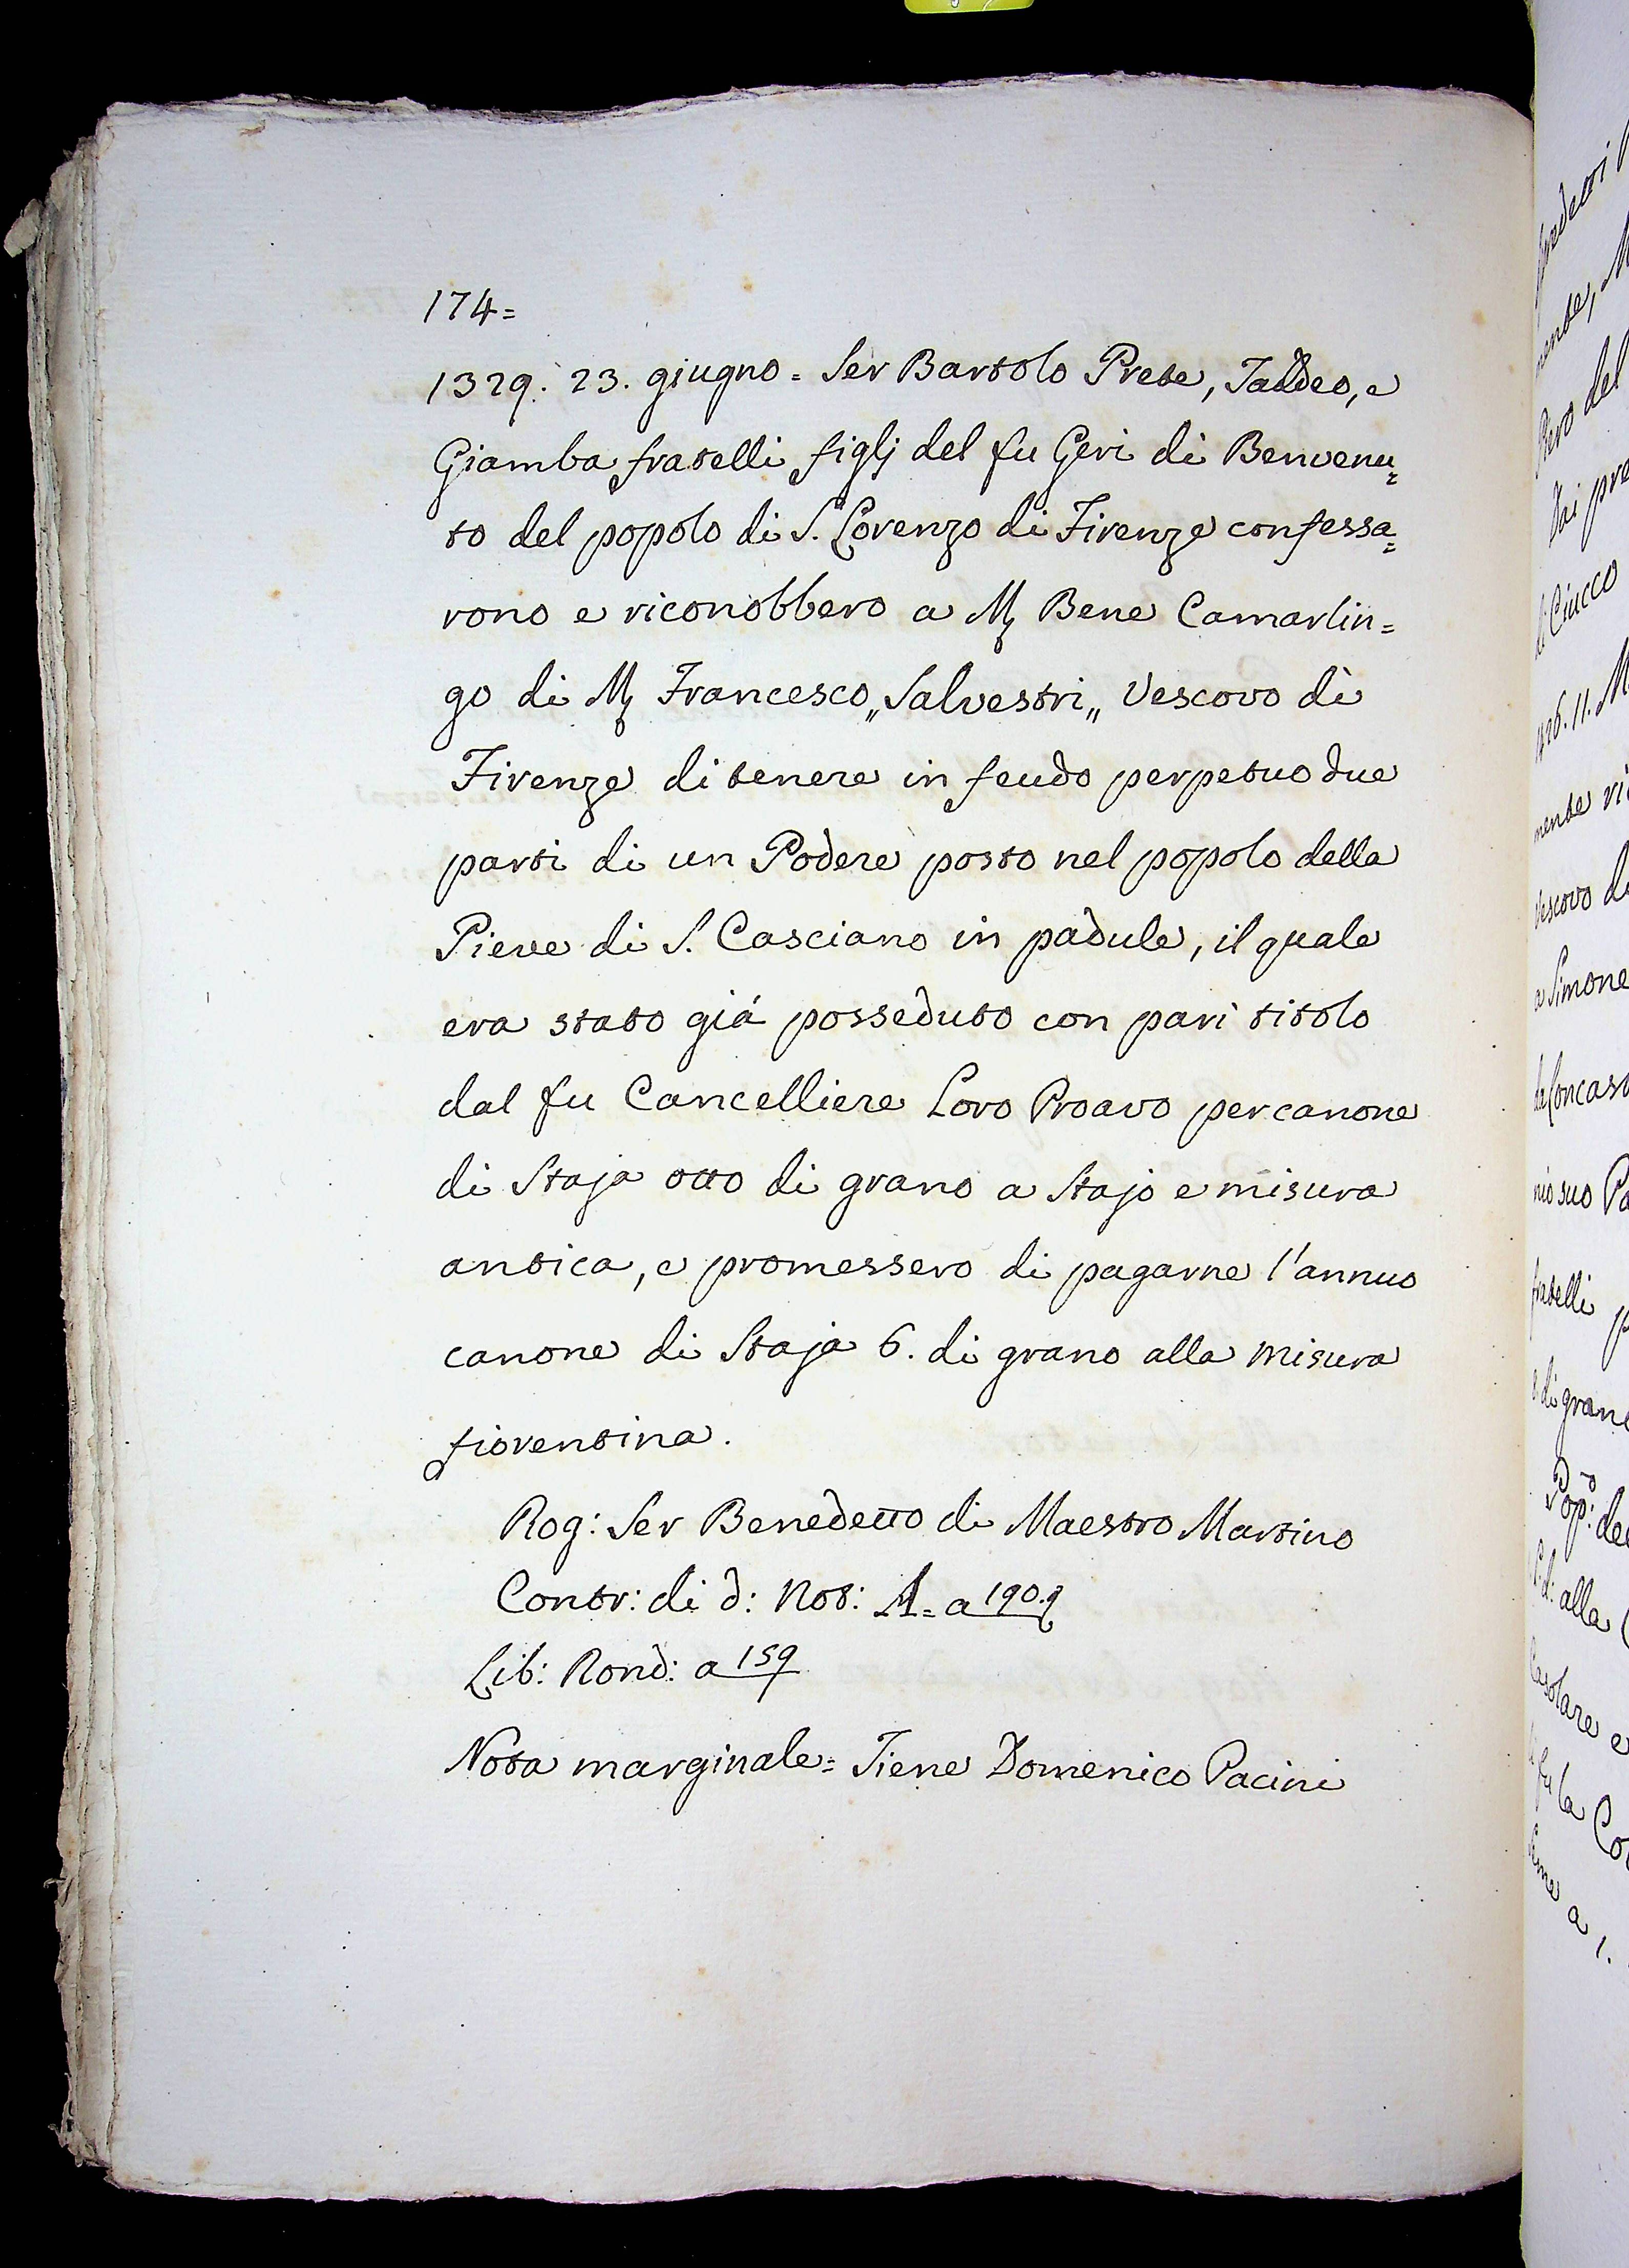 174=
1329. 23. giugno = Ser Bartolo Prete, Taddeo, e
Giamba fratelli figlj del fu Geri di Benvenu=
to del popolo di S. Lorenzo di Firenze confessa=
rono e riconobbero a M. Bene Camarlin=
go di M. Francesco „Salvestri„ Vescovo di
Firenze di tenere in feudo perpetuo due
parti di un Podere posto nel popolo della
Pieve di S. Casciano in padule, il quale
era stato giá posseduto con pari titolo
dal fu Cancelliere Loro Proavo per canone
di Staja otto di grano a Stajo e misura
antica, e promessero di pagarne l'annuo
canone di Staja 6. di grano alla misura
fiorentina.
Rog: Ser Benedetto di Maestro Martino
Contr: di d: Not: A= a 190.
Lib: Rond: a 159
Nota marginale= Tiene Domenico Pacini
di Ciucco
Vescovo
a Simone
suo
fratelli
di grano
Pop:
alla
Casolare e
fu la
a 1.